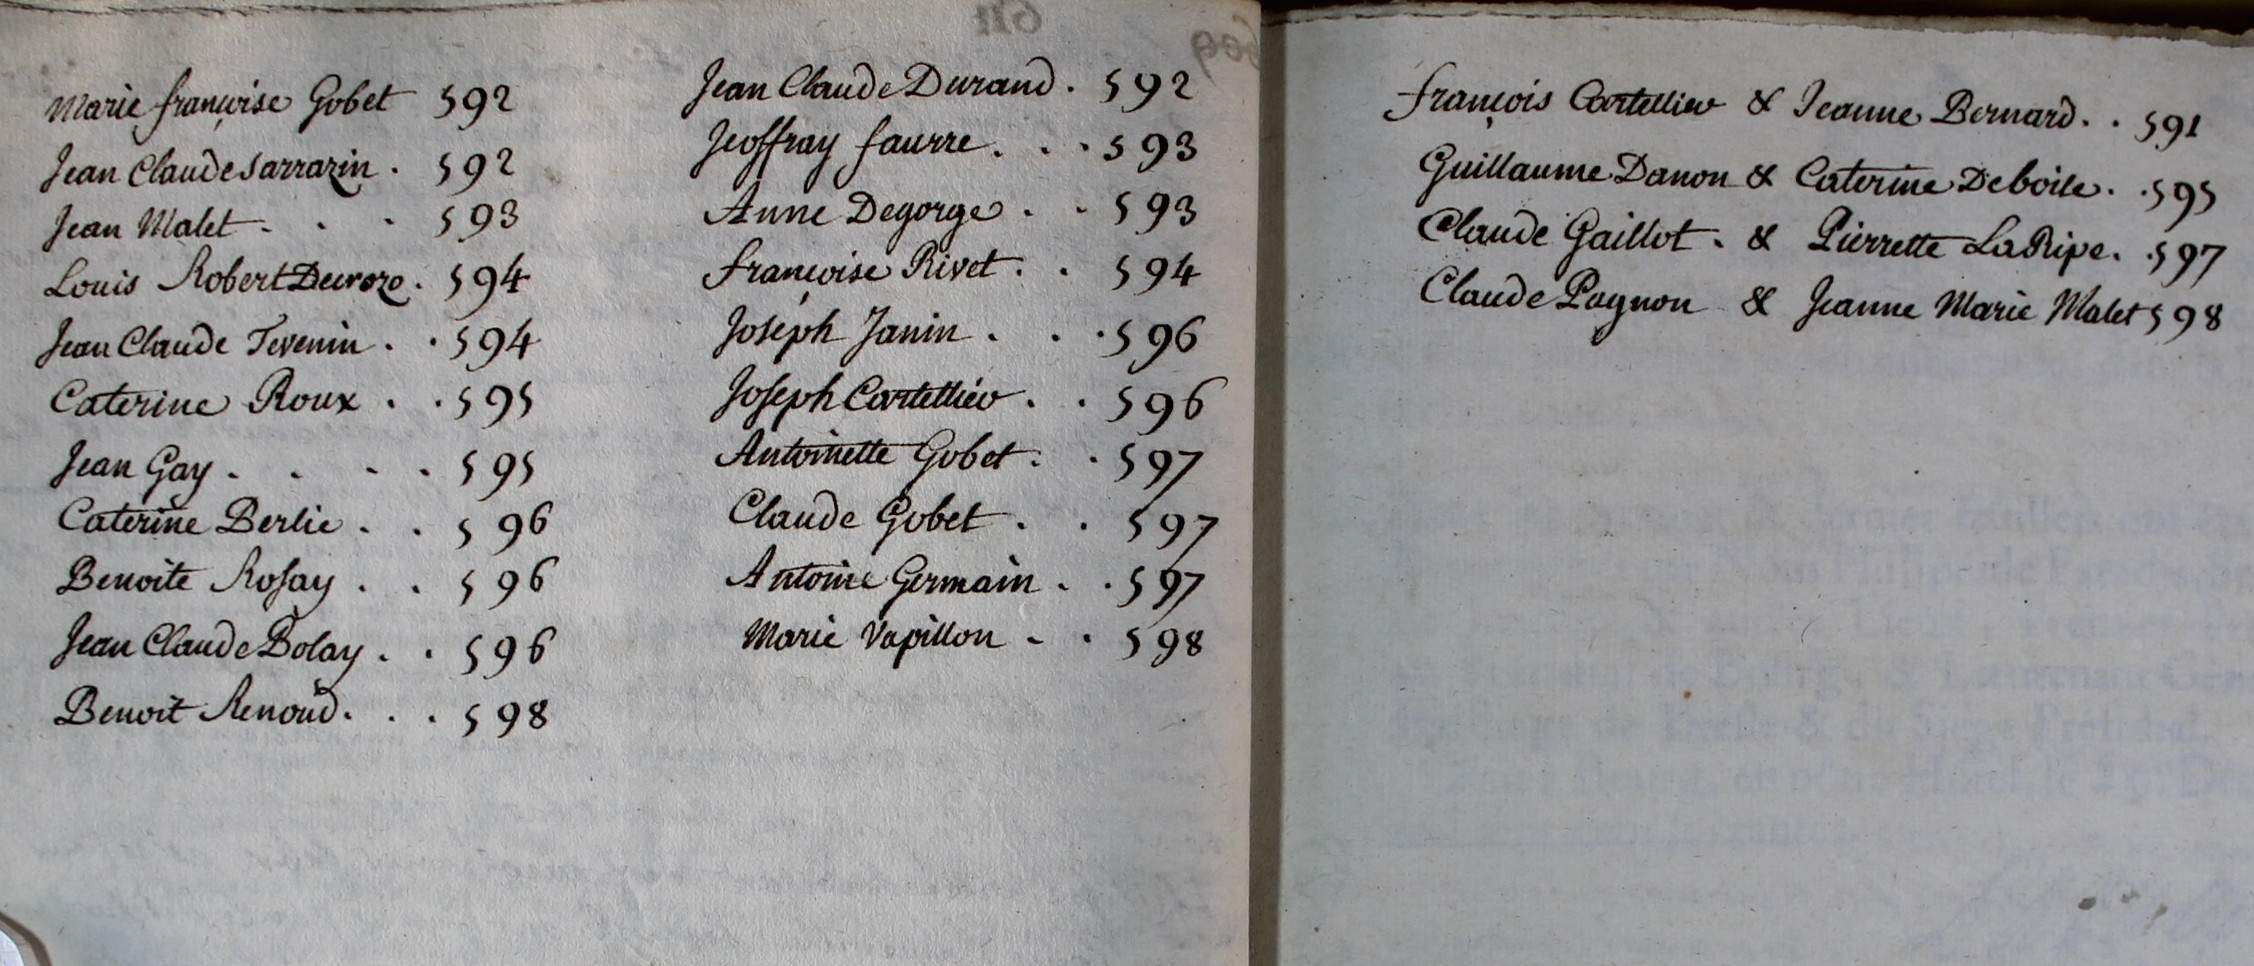 Marie françoise Gobet 592
Jean Claude Sarrazin . 592
Jean Malet . . . 593
Louis Robert . 594
Jean Claude Tevenin . . 594
Caterine Roux . . 595
Jean Gay . . . . 595
Caterine Berlie . . 596
Benoite Rosay . . 596
Jean Claude Bolay . . 596
Benoit Renoud . . . 598
Jean Claude Durand . 592
Jeoffray faurre . . . 593
Anne Degorge . . 593
françoise Rivet . . 594
Joseph Janin . . . 596
Joseph Cartellier . . 596
Antoinette Gobet . . 597
Claude Gobet . . 597
Antoine Germain . . 597
Marie Vapillon . . 598
françois Cartellier & Jeanne Bernard . . 591
Guillaume Danon & Caterine Deboile . . 595
Claude Gaillot . & Pierrette La Ripe . . 597
Claude Pagnon & Jeanne Marie Malet 598